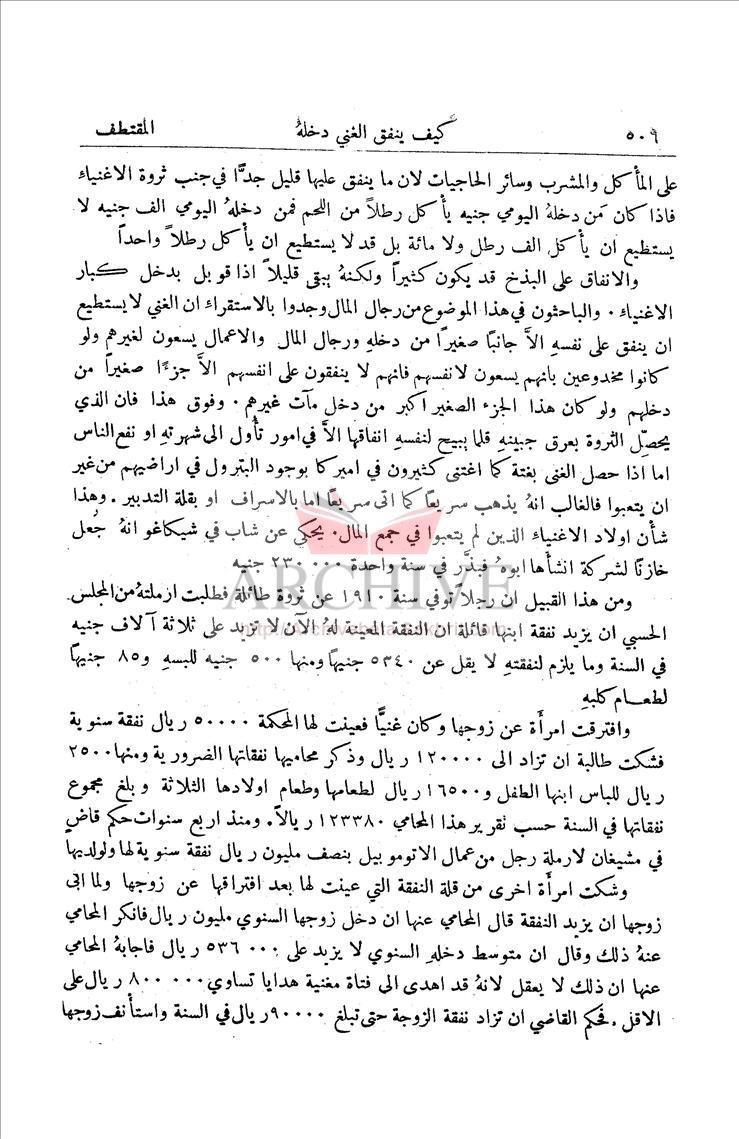 ٥٠٦ كيف ينفق الغني دخلهُ المقتطف
على المأكل والمشرب وسائر الحاجيات لان ما ينفق عليها قليل جدًّا في جنب ثروة الاغنياء
فاذا كان مَن دخلهُ اليومي جنيه يأكل رطلاً من اللحم فمن دخلهُ اليومي الف جنيه لا
يستطيع ان يأكل الف رطل ولا مائة بل قد لا يستطيع ان يأكل رطلاً واحداً
والانفاق على البذخ قد يكون كثيراً ولكنهُ يبقى قليلاً اذا قوبل بدخل كبار
الاغنياء . والباحثون في هذا الموضوع من رجال المال وجدوا بالاستقراء ان الغني لا يستطيع
ان ينفق على نفسهِ الاَّ جانبًا صغيرًا من دخلهِ ورجال المال والاعمال يسعون لغيرهم ولو
كانوا مخدوعين بانهم يسعون لانفسهم فانهم لا ينفقون على انفسهم الاَّ جزءًا صغيراً من
دخلهم ولو كان هذا الجزء الصغير اكبر من دخل مآت غيرهم . وفوق هذا فان الذي
يحصّل الثروة بعرق جبينهِ قلما يبيح لنفسهِ انفاقها الاَّ في امور تأُول الى شهرتهِ او نفع الناس
اما اذا حصل الغنى بغتة كما اغتنى كثيرون في اميركا بوجود البترول في اراضيهم من غير
ان يتعبوا فالغالب انهُ يذهب سريعًا كما اتى سريعًا اما بالاسراف او بقلة التدبير . وهذا
شأن اولاد الاغنياء الذين لم يتعبوا في جمع المال . يحكى عن شاب في شيكاغو انهُ جُعل
خازنًا لشركة انشأها ابوهُ فبذَّر في سنة واحدة ٢٣٠٠٠٠ جنيه
ومن هذا القبيل ان رجلاً توفي سنة ١٩١٠ عن ثروة طائلة فطلبت ارملتهُ من المجلس
الحسبي ان يزيد نفقة ابنها قائلة ان النفقة المعينة لهُ الآن لا تزيد على ثلاثة آلاف جنيه
في السنة وما يلزم لنفقتهِ لا يقل عن ٥٣٤٠ جنيهًا ومنها ٥٠٠ جنيه للبسهِ و٨٥ جنيهًا
لطعام كلبهِ
وافترقت امرأَة عن زوجها وكان غنيًّا فعينت لها المحكمة ٥٠٠٠٠ ريال نفقة سنوية
فشكت طالبة ان تزاد الى ١٢٠٠٠٠ ريال وذكر محاميها نفقاتها الضرورية ومنها ٢٥٠٠
ريال للباس ابنها الطفل و١٦٥٠٠ ريال لطعامها وطعام اولادها الثلاثة وبلغ مجموع
نفقاتها في السنة حسب تقرير هذا المحامي ١٢٣٣٨٠ ريالاً . ومنذ اربع سنوات حكم قاضٍ
في مشيغان لارملة رجل من عمال الاتوموبيل بنصف مليون ريال نفقة سنوية لها ولولديها
وشكت امرأَة اخرى من قلة النفقة التي عينت لها بعد افتراقها عن زوجها ولما ابى
زوجها ان يزيد النفقة قال المحامي عنها ان دخل زوجها السنوي مليون ريال فانكر المحامي
عنهُ ذلك وقال ان متوسط دخلهِ السنوي لا يزيد على ٥٣٦٠٠٠ ريال فاجابهُ المحامي
عنها ان ذلك لا يعقل لانهُ قد اهدى الى فتاة مغنية هدايا تساوي ٨٠٠٠٠٠ ريال على
الاقل . فحكم القاضي ان تزاد نفقة الزوجة حتى تبلغ ٩٠٠٠٠ ريال في السنة واستأنف زوجها
ARCHIVE